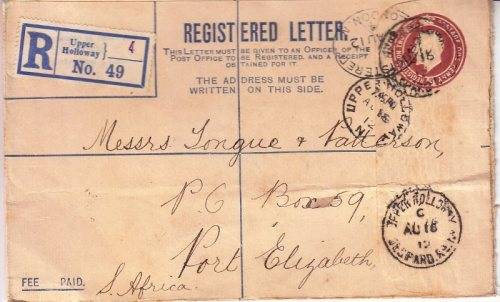 REGISTERED LETTER.
THIS LETTER MUST BE GIVEN TO AN OFFICER OF THE
POST OFFICE TO BE REGISTERED, AND A RECEIPT
OBTAINED FOR IT.
THE ADDRESS MUST BE
WRITTEN ON THIS SIDE.
R
Upper
Holloway
4
No. 49
UPPER HOLLOWAY
AU 16
12
Messrs Tongue & Patterson,
P.O Box 59,
Port Elizabeth.
S. Africa.
FEE PAID.
UPPER HOLLOWAY
C
AU 16
12